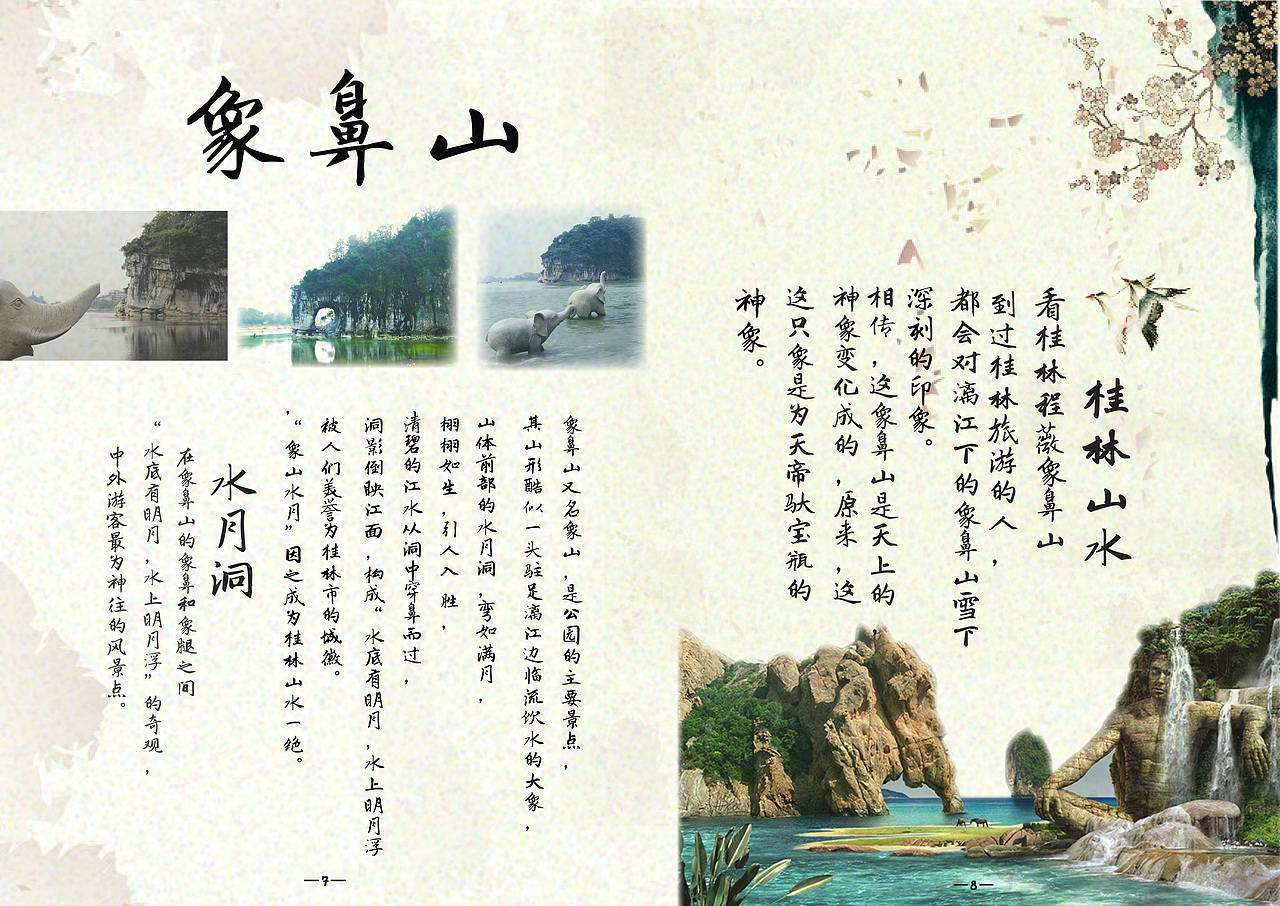 象鼻山
象鼻山又名象山，是公园的主要景点，
其山形酷似一头驻足漓江边临流饮水的大象，
山体前部的水月洞，弯如满月，
栩栩如生，引人入 胜，
清碧的江水从洞中穿鼻而过，
洞影倒映江面，构成“水底有明月，水上明月浮
被人们美誉为桂林市的城徽。
，“象山水月”因之成为桂林山水一绝。
水月洞
在象鼻山的象鼻和象腿之间
“水底有明月，水上明月浮”的奇观，
中外游客最为神往的风景点。
—7—
桂林山水
看桂林程薇象鼻山
到过桂林旅游的人，
都会对漓江下的象鼻山雪下
深刻的印象。
相传，这象鼻山是天上的
神象变化成的，原来，这
这只象是为天帝驮宝瓶的
神象。
—8—